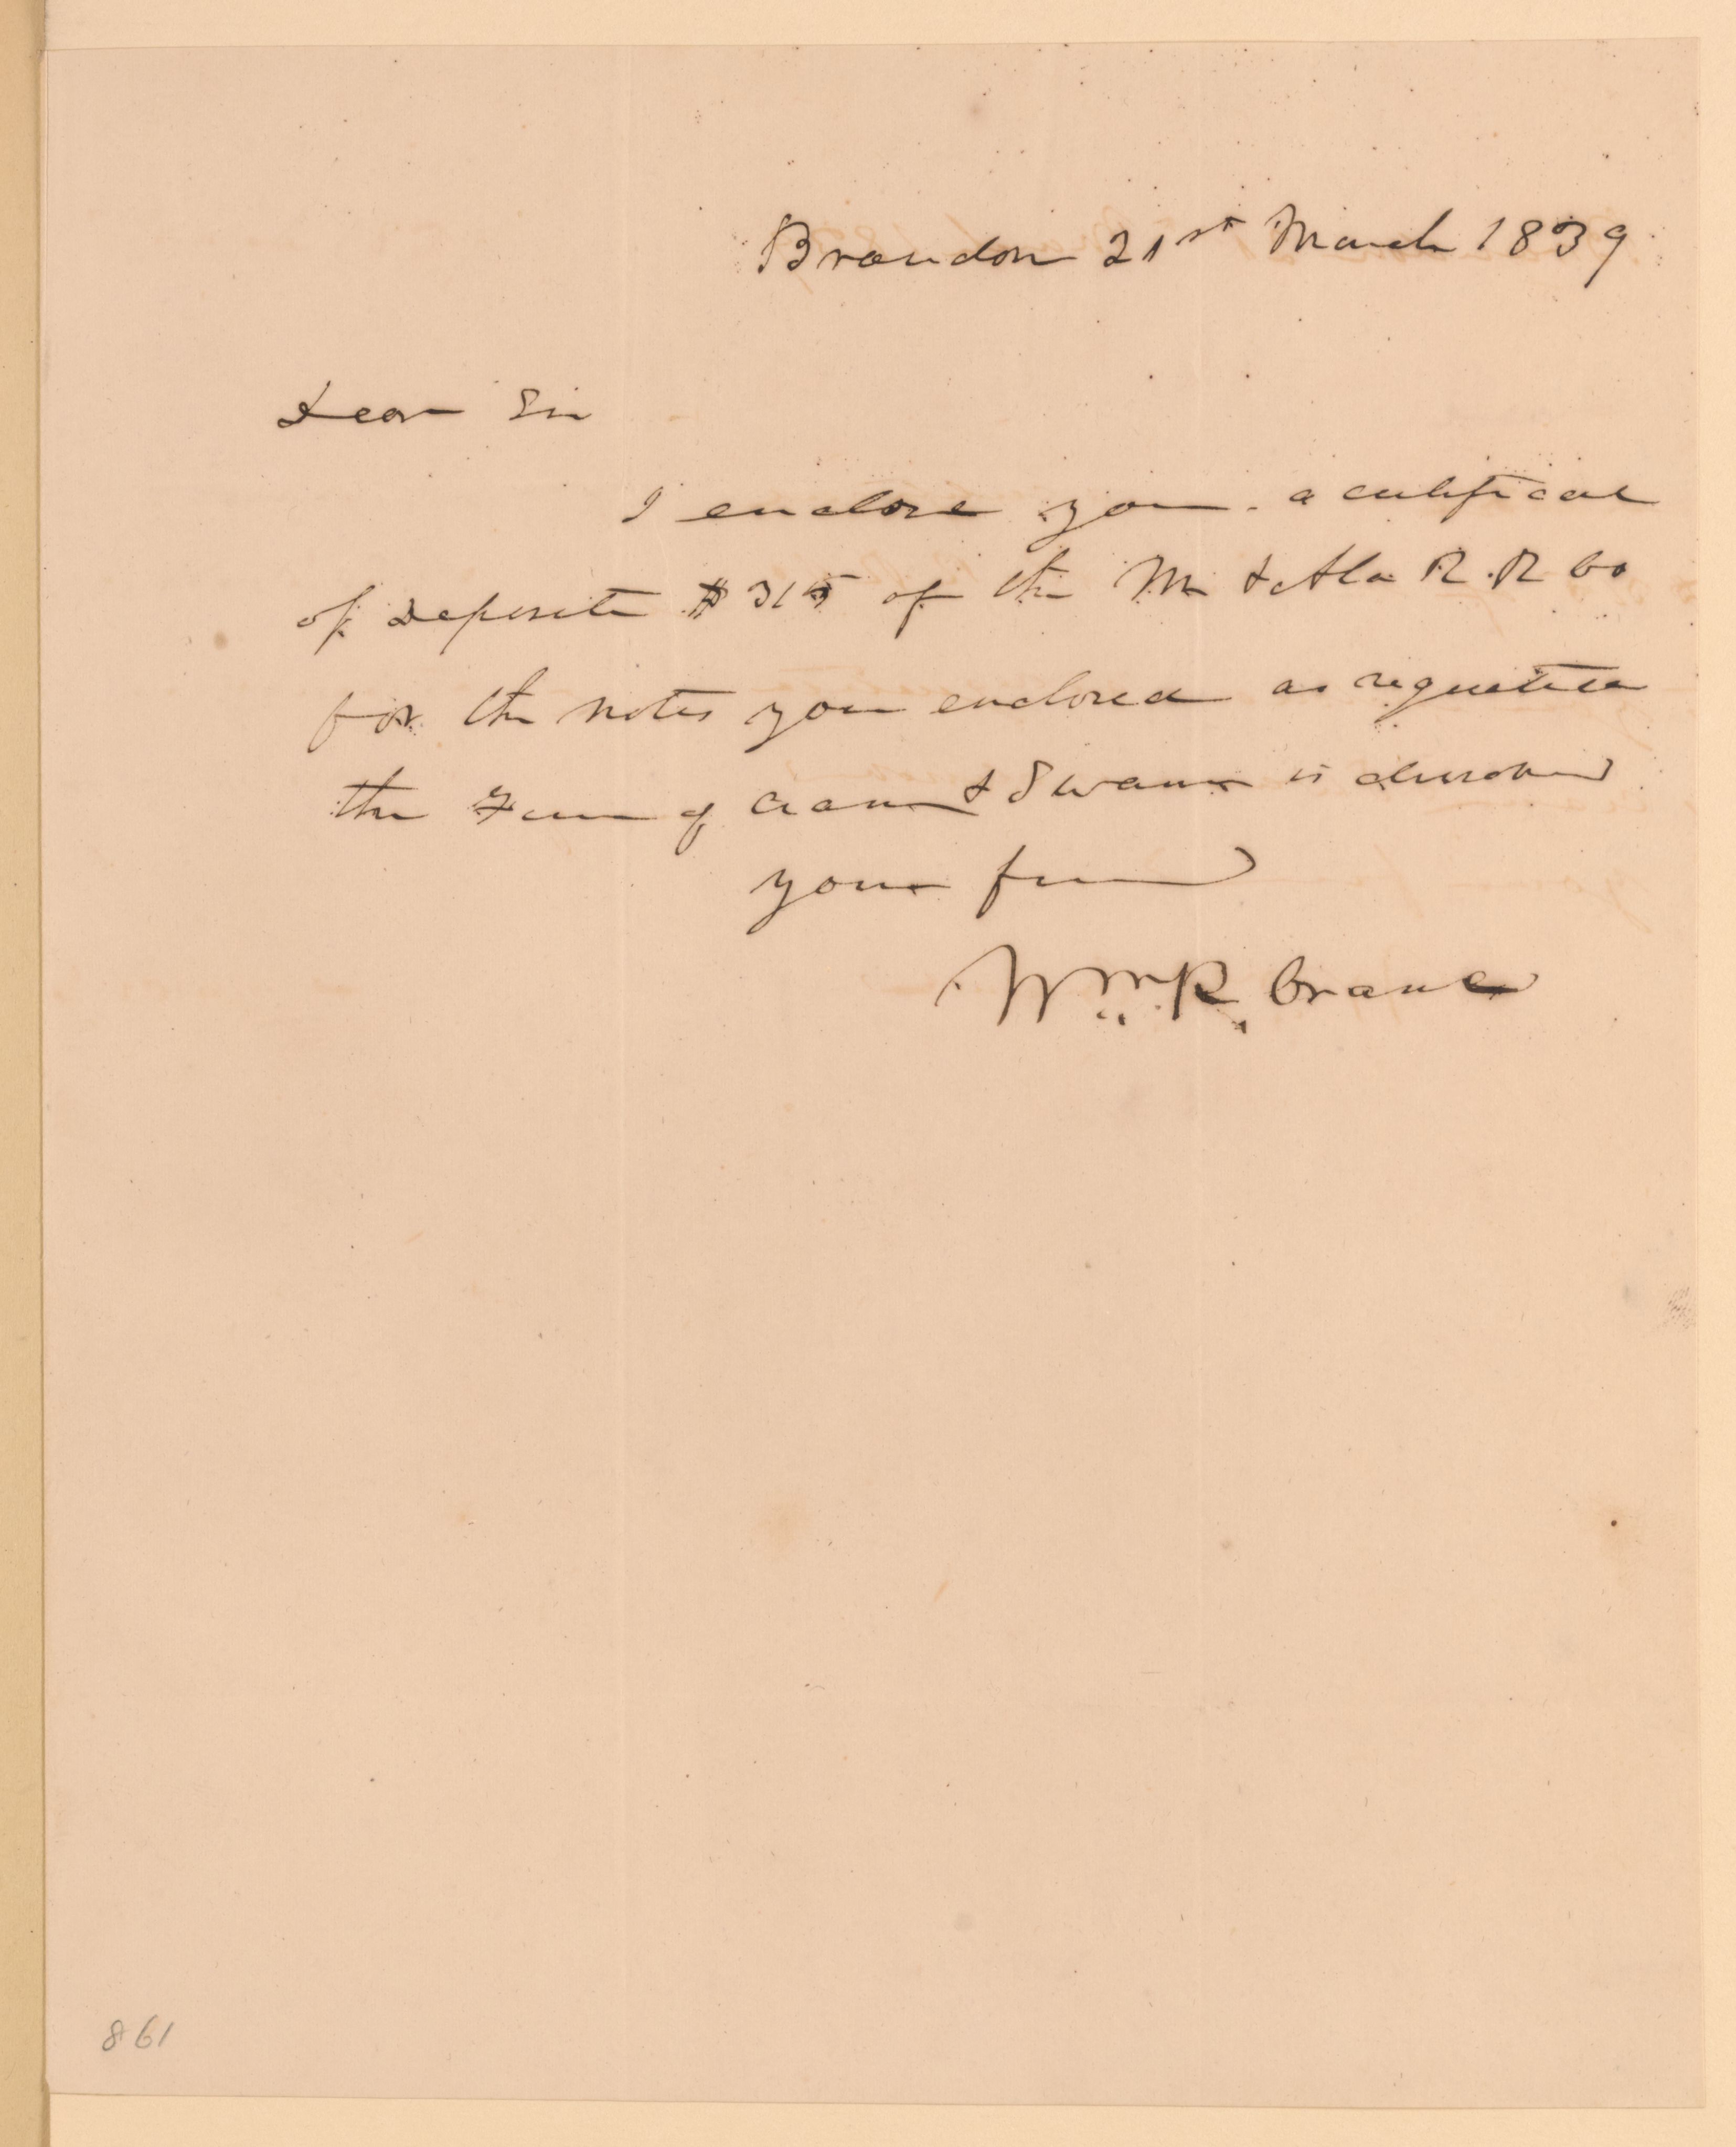 Brandon 21st March 1839
Dear Sir
I enclose you a certificate
of Deposite $315 of the M & Ala R. R Co
for the notes you enclosed as requested
the Firm of Crane & Swann is dissolved
your friend
Wm R. Crane
861